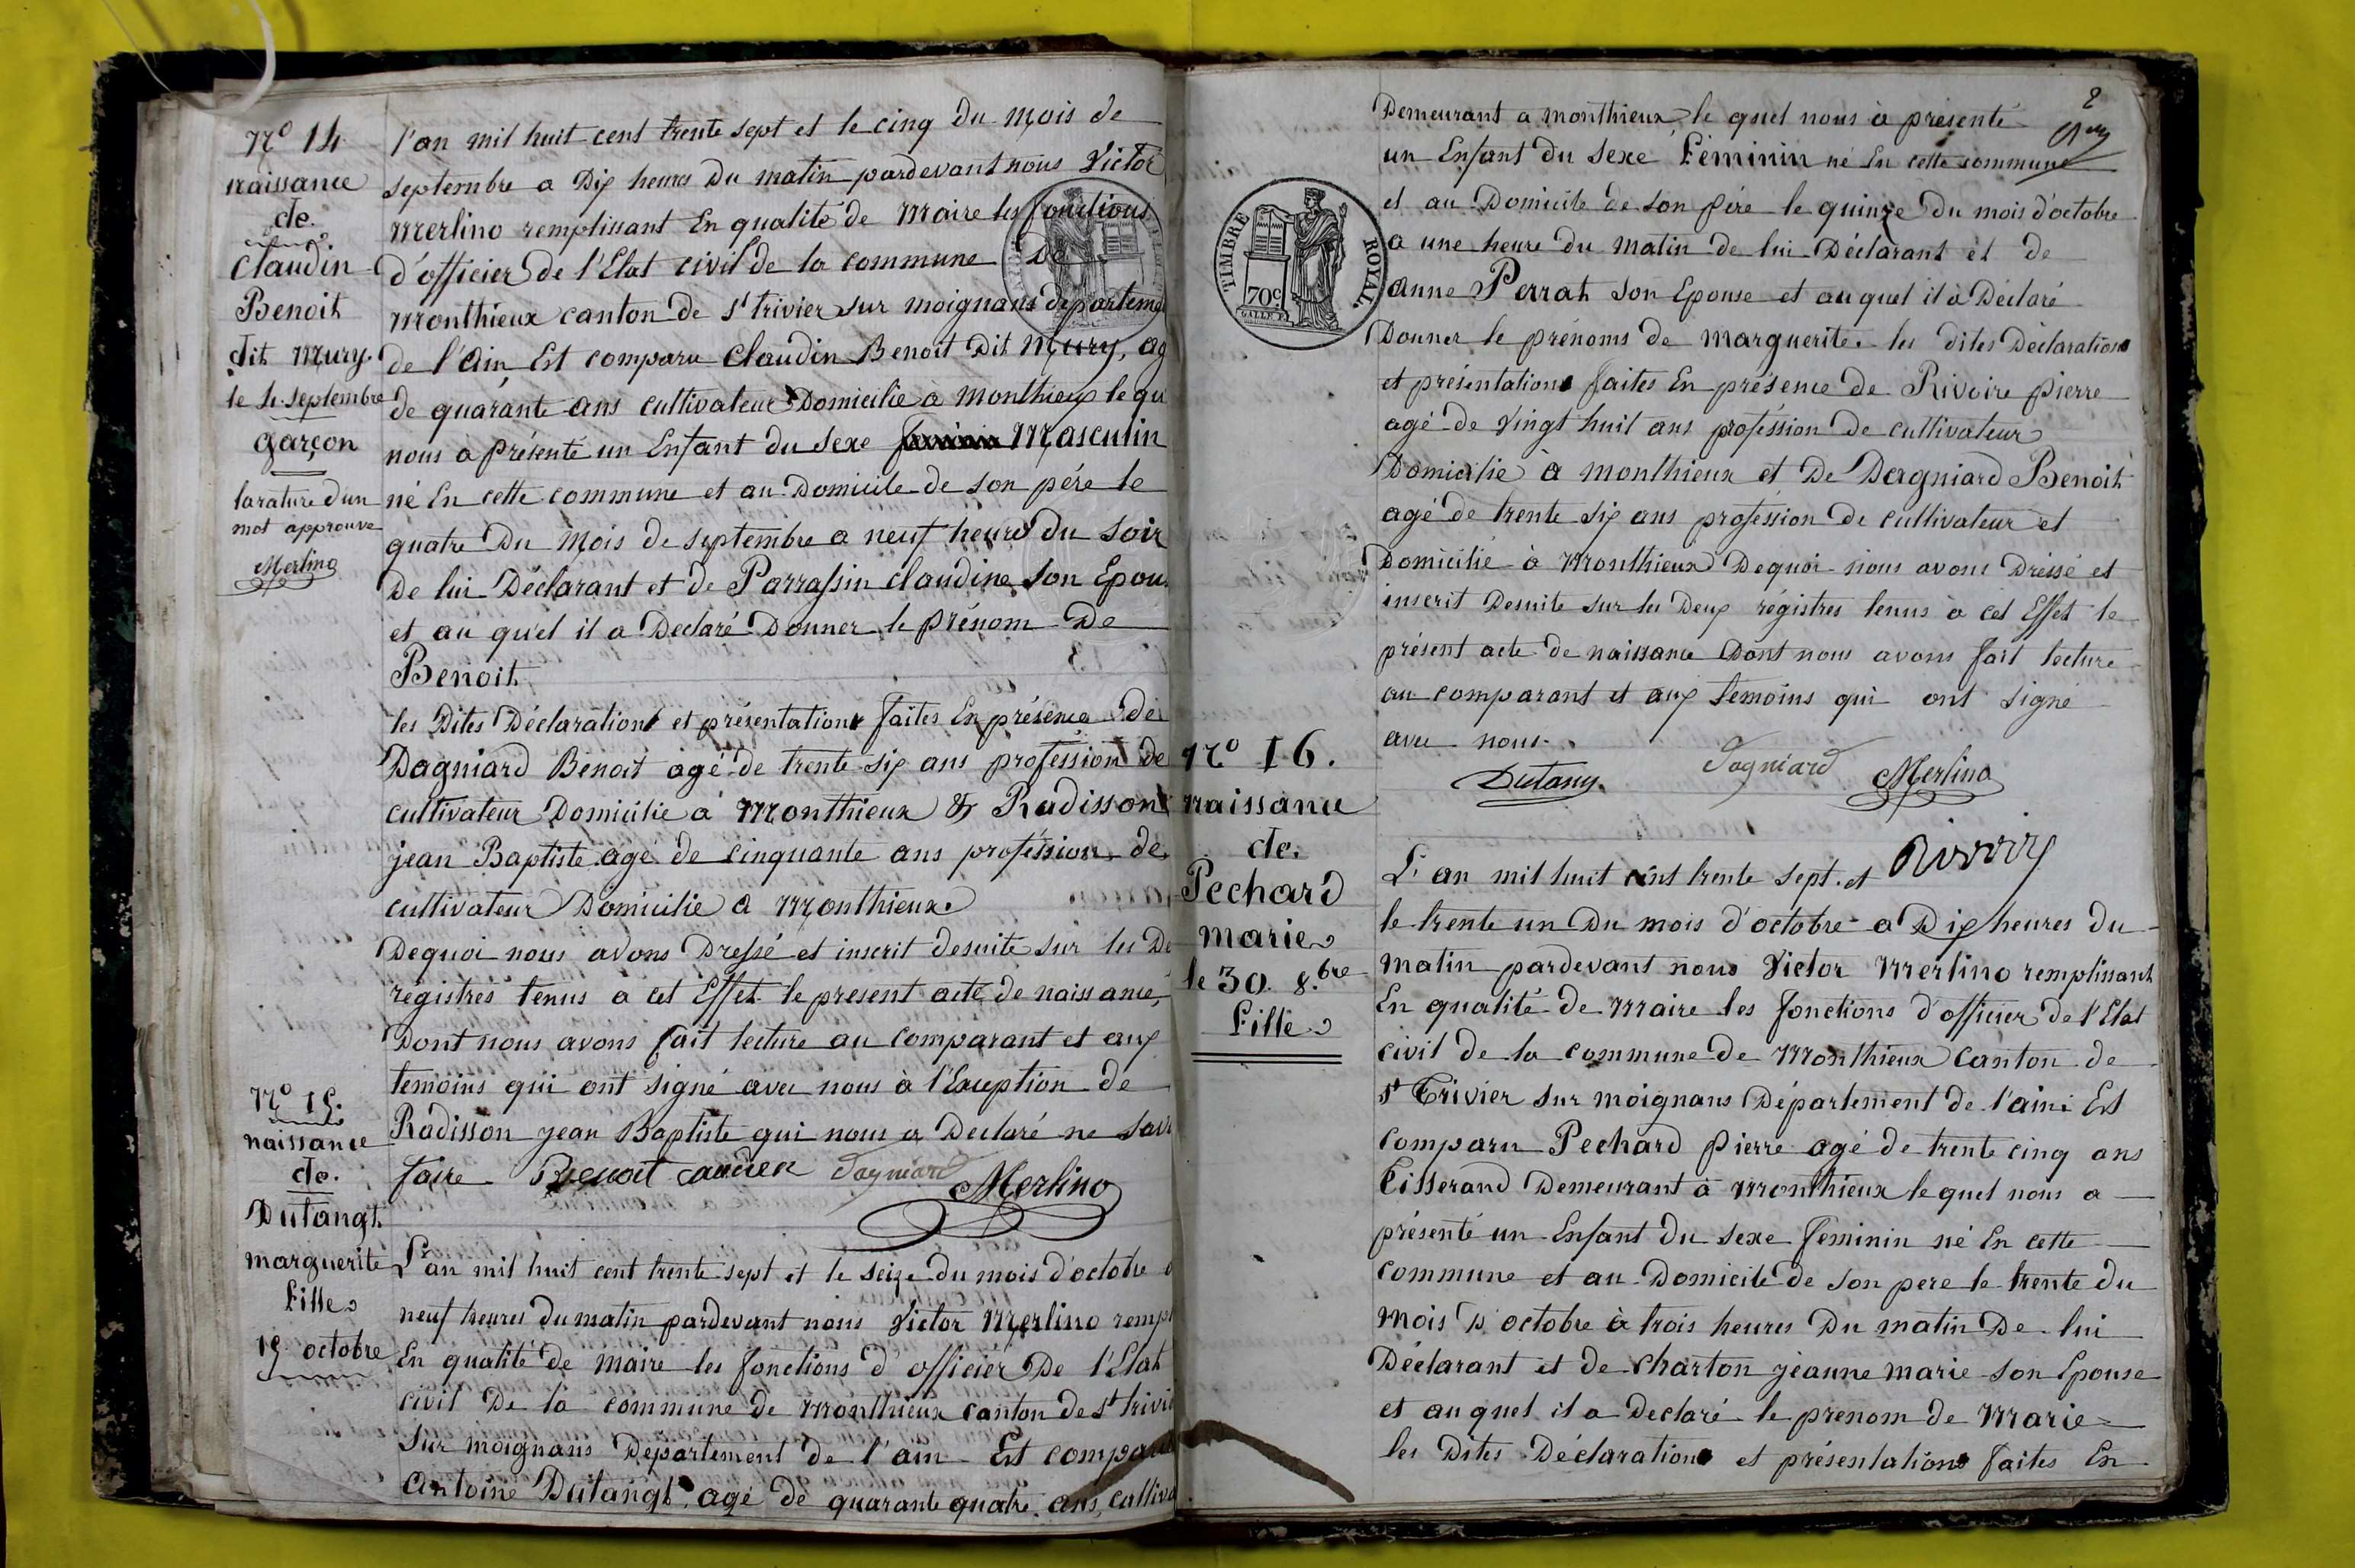 N.o 14
naissance
de.
Claudin
Benoit
dit Mury.
le 4 septembre
garçon
la rature d'un
mot approuvé
Merlino
l'an mil huit cent trente sept et le cinq du mois de
septembre a Dix heures du matin pardevant nous Victor
Merlino remplissant En qualité de Maire les fonctions
d'officier de l'Etat civil de la commune De
Monthieux canton de St trivier sur moignans departeme
de l'Ain Est comparu Claudin Benoit Dit Mury, ag
de quarante ans cultivateur Domicilié a Monthieux le qu
nous a présenté un Enfant du sexe feminin Masculin
né En cette commune et au Domicile de son père le
quatre Du Mois de septembre a neuf heures du soir
De lui Déclarant et de Parrassin claudine son Epou
et au quel il a Declaré Donner le prénom De
Benoit
les Dites Déclarations et présentations faites En présence de
Dagniard Benoit agé de trente six ans profession de
cultivateur Domicilié a Monthieux & Radisson
jean Baptiste agé de cinquante ans proféssion de
cultivateur Domicilié a Monthieux
Dequoi nous avons Dressé et inscrit desuite sur les De
régistres tenus a cet Effet le present acte de naissance,
Dont nous avons fait lecture au comparant et aux
temoins qui ont signé avec nous à l'Exception de
Radisson jean Baptiste qui nous a Declaré ne savr
faire Benoit Dagniard Merlino
N.o 15.
naissance
de.
Dutangt
marguerite
fille
15 octobre
L'an mil huit cent trente sept et le seize du mois d'octobre a
neuf heures du matin pardevant nous Victor Merlino rempl
En qualité de maire les fonctions d'officier De l'Etat
civil De la commune de Monthieux canton de St trivi
sur moignans Departement de l'ain Est comparu
Antoine Dutangt agé de quarante quatre ans, cultiva
2
Demeurant a monthieux le quel nous à présenté
un Enfant du sexe féminin né En cette commune
et au Domicile de son père le quinze Du mois d'octobre
a une heure du matin de lui Déclarant et de
anne Perrat son Epouse et au quel il à Déclaré
Donner le prénoms de marguerite. les dites Déclarations
et présentations faites En présence de Rivoire pierre
agé de vingt huit ans proféssion de cultivateur
Domicilié à monthieux et De Dagniard Benoit
agé de trente six ans proféssion de cultivateur et
Domicilié à Monthieux Dequoi nous avons Dréssé et
inscrit Desuite sur les Deux régistres tenus à cet Effet le
présent acte de naissance Dont nous avons fait lecture
au comparant et aux temoins qui ont signé
avec nous.
Dutany. Dagniard Merlino
TIMBRE ROYAL.
70c.
N.o 16.
naissance
de.
Pechard
marie
le 30. 8.bre
fille
L'an mil huit cent trente sept. et
le trente un Du mois d'octobre a Dix heures du
matin pardevant nous Victor Merlino remplissant
En qualité de Maire les fonctions d'officier de l'Etat
civil de la commune de Monthieux canton de
St Trivier sur moignans Département de l'ain Est
comparu Pechard pierre agé de trente cinq ans
tisserand Demeurant à Monthieux le quel nous a
présenté un Enfant Du sexe feminin né En cette
commune et au Domicile de son pere le trente du
mois D'octobre à trois heures Du matin De lui
Déclarant et de charton jeanne marie son Epouse
et au quel il a Declaré le prenom de Marie
les Dites Déclarations et présentations faites En